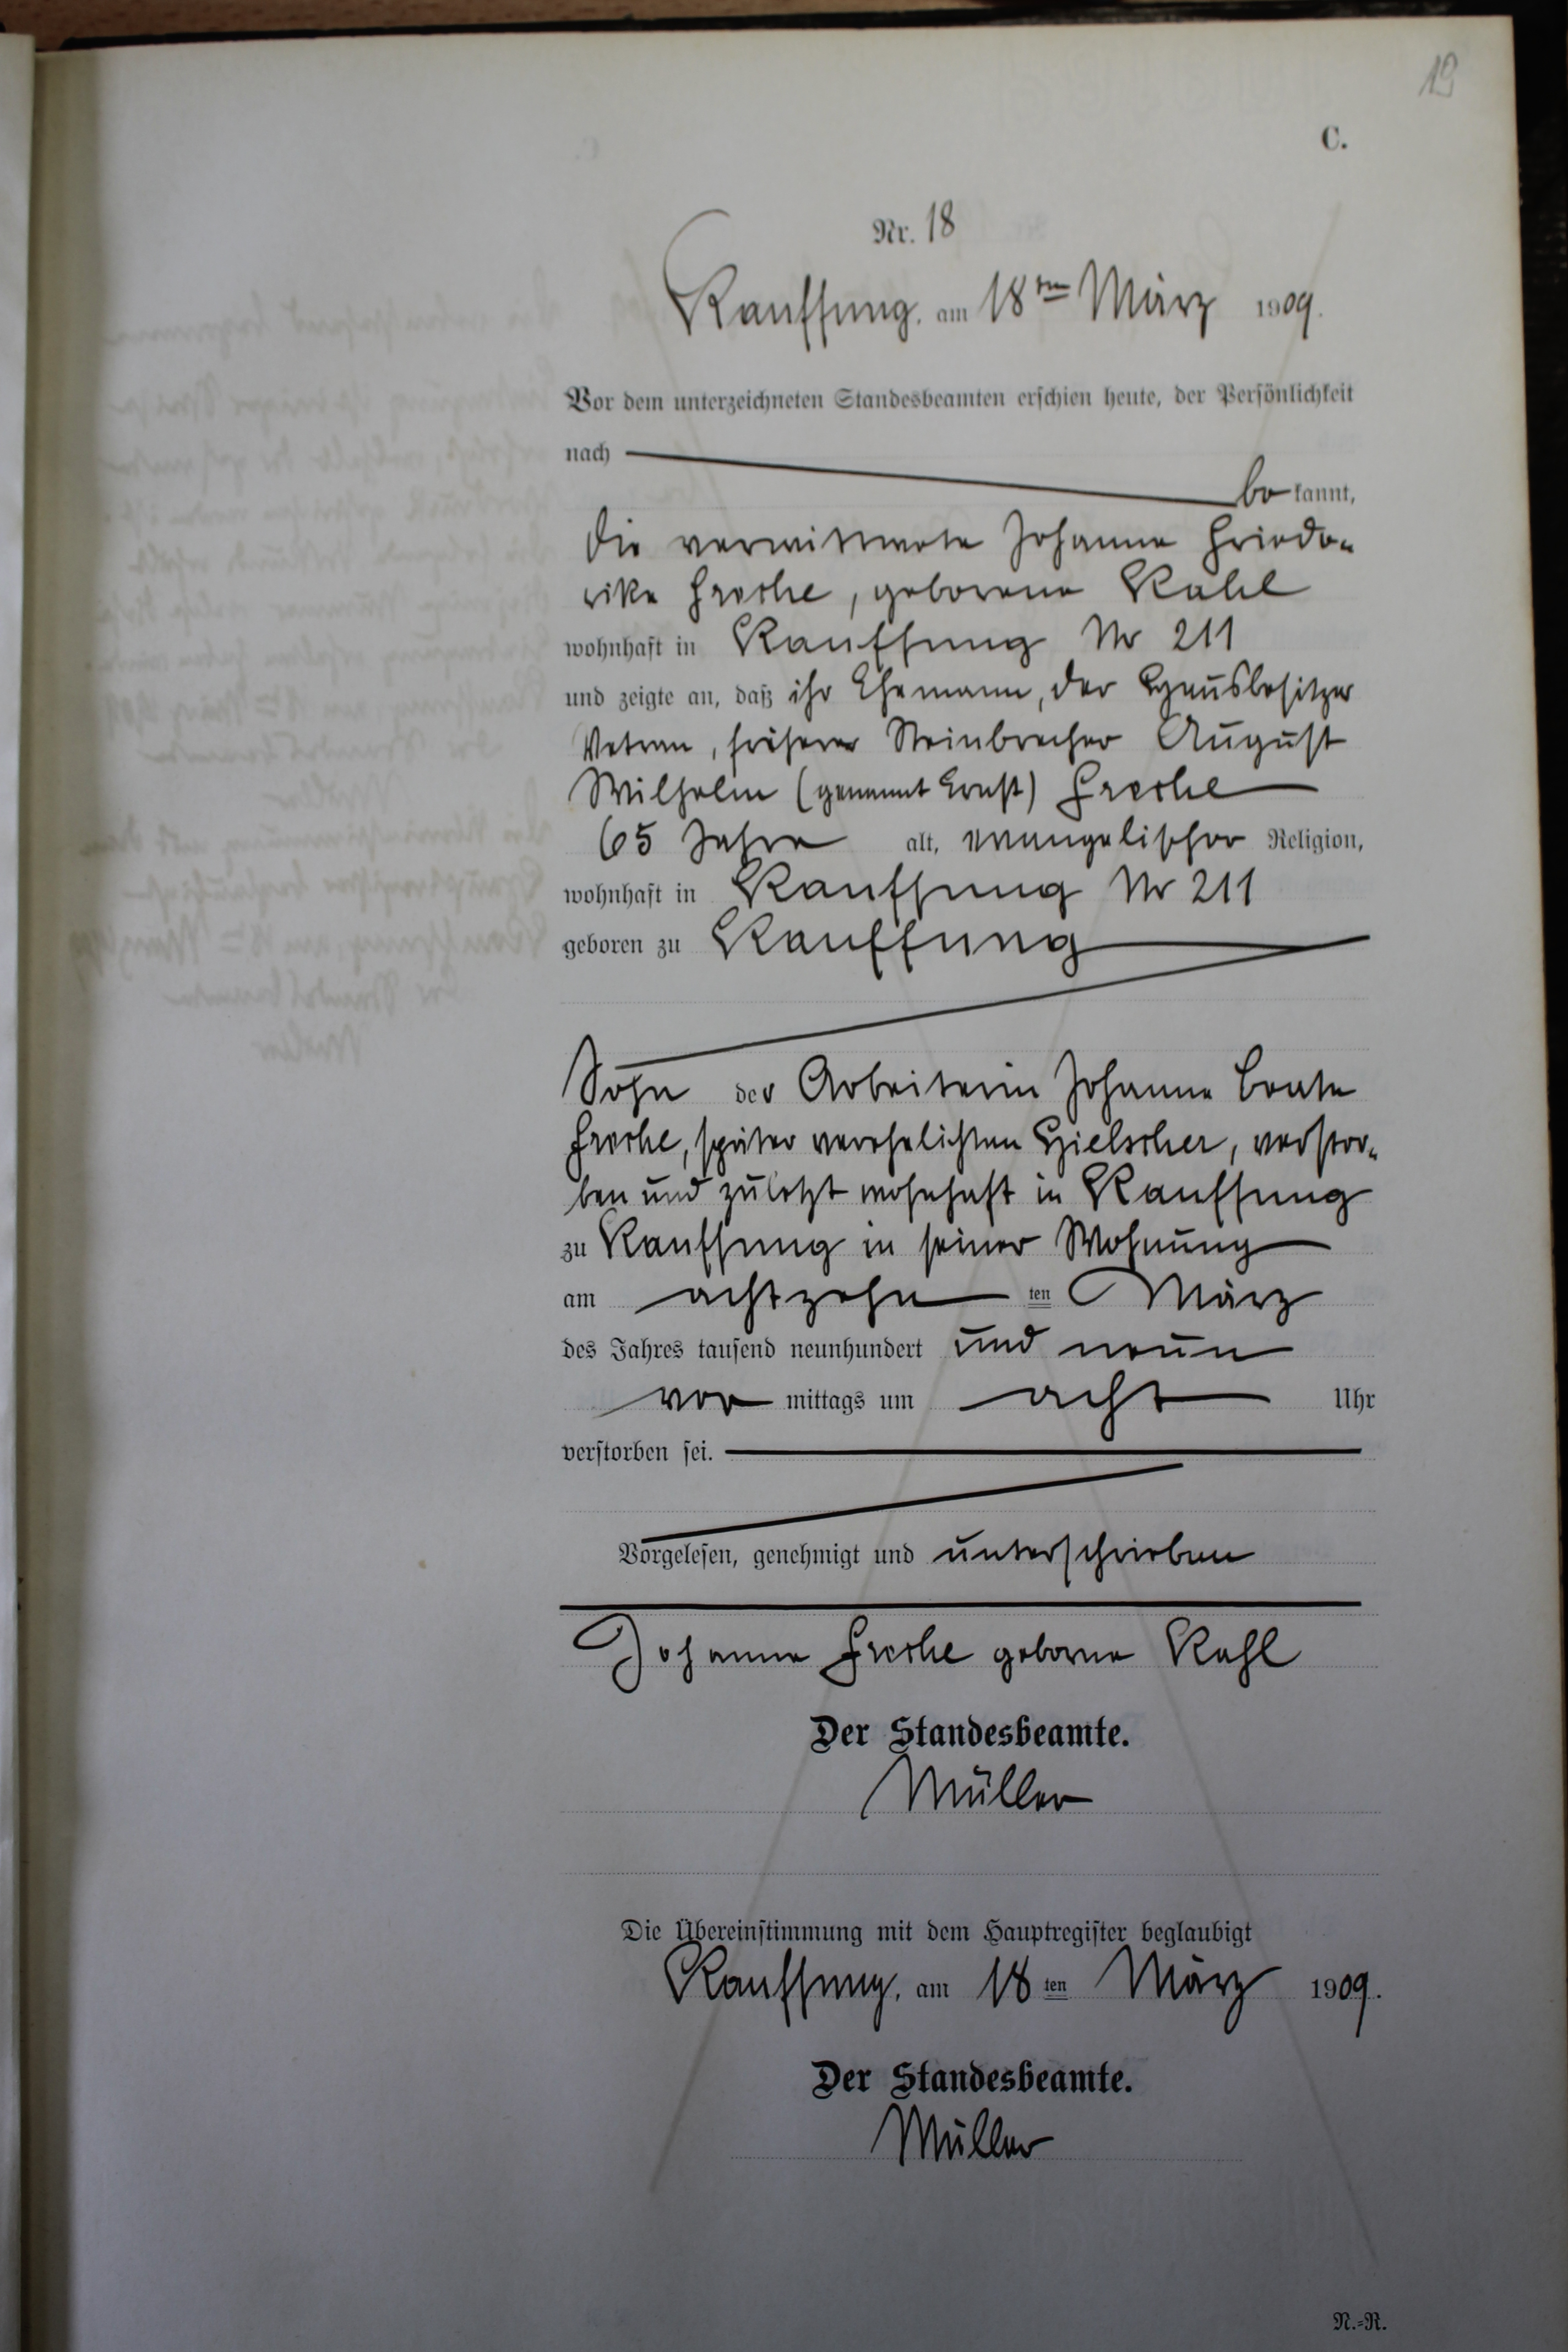 19
C.
Nr. 18
Kauffung, am 18ten März 1909.
Vor dem unterzeichneten Standesbeamten erschien heute, der Persönlichkeit
nach
bekannt,
die verwittwete Johanne Friede-
rike Freche, geborene Kahl
wohnhaft in Kauffung Nr 211
und zeigte an, daß ihr Ehemann, der Hausbesitzer
Veteran, früherer Steinbrecher August
Wilhelm (genannt Ernst) Freche
65 Jahre alt, evangelischer Religion,
wohnhaft in Kauffung Nr 211
geboren zu Kauffung
Sohn der Arbeiterin Johanne Beate
Freche, später verehelichten Hielscher, verstor-
ben und zuletzt wohnhaft in Kauffung
zu Kauffung in seiner Wohnung
am achtzehn ten März
des Jahres tausend neunhundert und neun
vor mittags um acht Uhr
verstorben sei.
Vorgelesen, genehmigt und unterschrieben
Johanna Freche geborne Kahl
Der Standesbeamte.
Müller
Die Übereinstimmung mit dem Hauptregister beglaubigt
Kauffung, am 18 ten März 1909.
Der Standesbeamte.
Müller
N.-R.